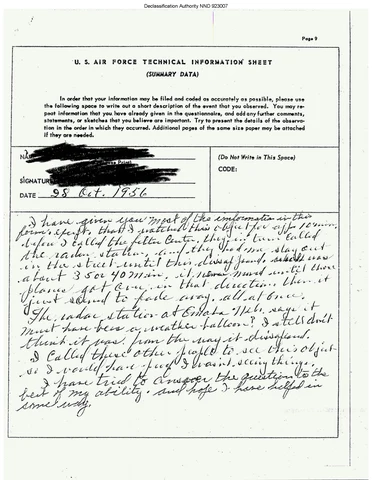 Declassification Authority NND 923007
Page 9
U. S. AIR FORCE TECHNICAL INFORMATION SHEET
(SUMMARY DATA)
In order that your information may be filed and coded as accurately as possible, please use
the following space to write out a short description of the event that you observed. You may re-
peat information that you have already given in the questionnaire, and add any further comments,
statements, or sketches that you believe are important. Try to present the details of the observa-
tion in the order in which they occurred. Additional pages of the same size paper may be attached
if they are needed.
(Do Not Write in This Space)
CODE:
SIGNATUR
DATE 28 Oct. 1956
I have given you most of the information in this
form, except that I watched this object for app 10 min
before I called the filter Center, they in turn called
the radar station, and they had me stay out
in the street until this disappeared. which was
about 35 or 40 min, it never moved until those
planes got over in that direction then it
just seemed to fade away. all at once.
The radar station at Omaha Neb. says it
must have been a weather balloon? I still don't
think it was, from the way it disappeared.
I called these other people to see this object
so I would have proof I wasn't seeing things.
I have tried to answer the question to the
best of my ability. and hope I have helped in
some way.